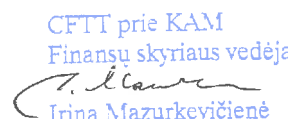 CFTT prie KAM
Finansų skyriaus vedėja
Irina Mazurkevičienė